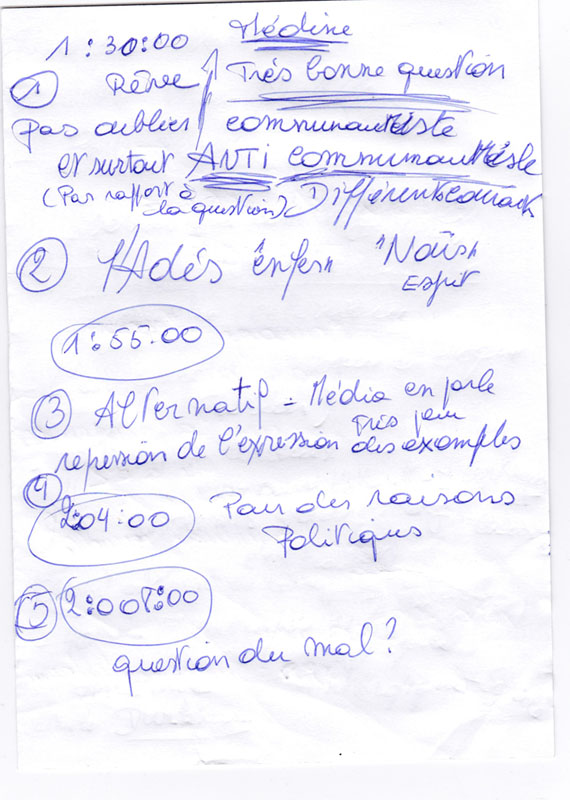 1:30:00 Médine
① Rêvee Très bonne question
pas oublier communautariste
et surtout ANTI communautariste
(Par rapport à la question) Différents
② Hadés "enfer" "Noûs"
Esprit
1:55.00
③ Alternatif = Média en parle
Très peu
repression de l'expression des exemples
④
2:04:00 Pour des raisons
Politiques
⑤ 2:007:00
question du mal?